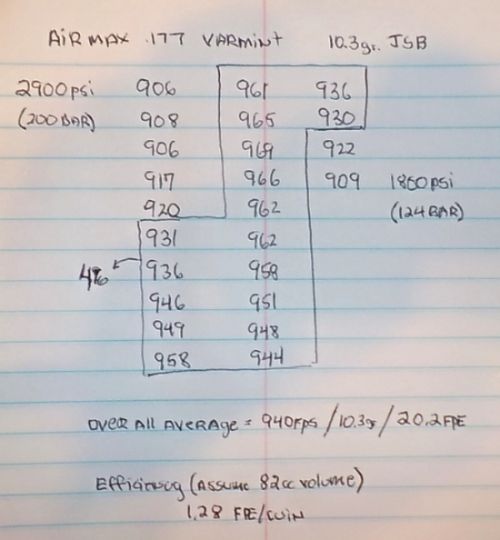 AIRMAX .177 VARMINT 10.3gr. JSB
2900psi 906 961 936
(200BAR) 908 965 930
906 969 922
917 966 909 1800psi
920 962 (124BAR)
931 962
4% 936 958
946 951
949 948
958 944
OVER All AVERAGE = 940fps / 10.3gr / 20.2FPE
Efficiency (Assume 82cc volume)
1.28 FPE/CUIN